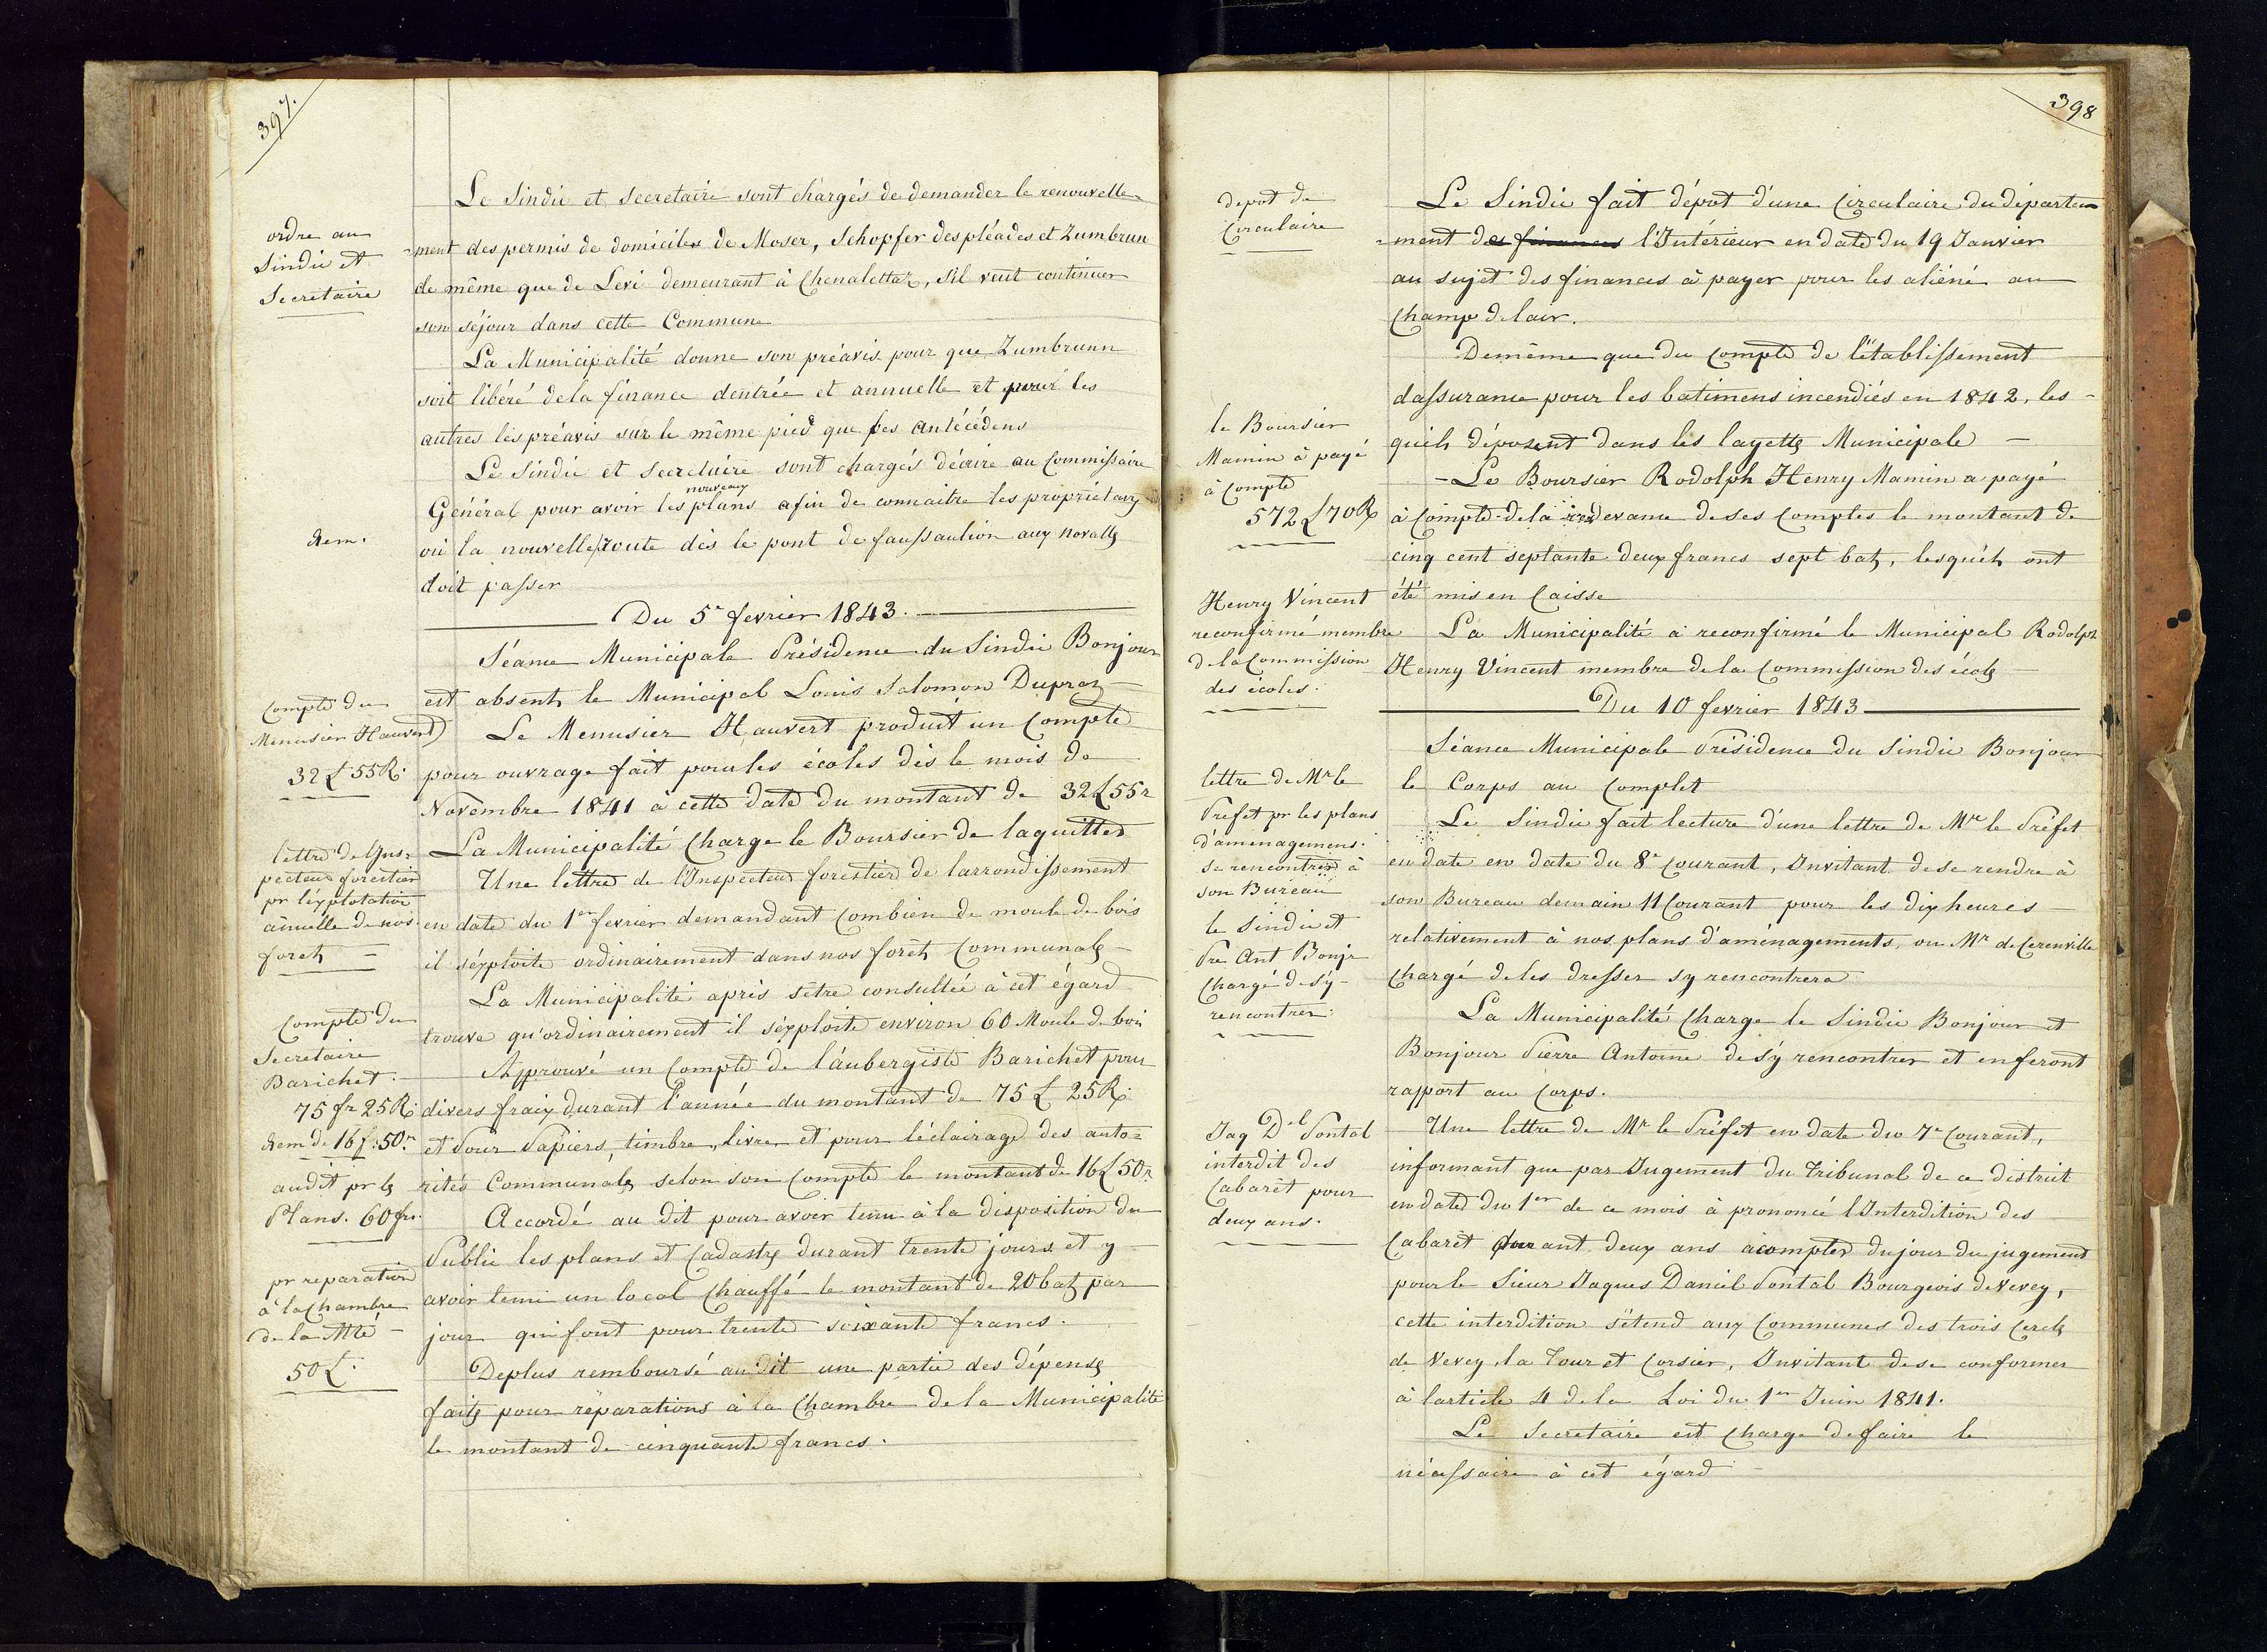 397.
Le Sindic et Secretaire sont chargés de demander le renouvelle-
ordre au
Sindic et
Secretaire
=ment des permis de domiciles de Moser, Schopfer des pléades et Zumbrun
de même que de Levi demeurant à Chenalettaz, sil veut continuer
son séjour dans cette Commune
La Municipalité donne son préavis pour que Zumbrunn
soit libéré de la finance dentrée et annuelle et pour les
autres les préavis sur le même pied que les antécédens
Le Sindic et Secretaire sont chargés décrire au Commissaire
nouveaux
Général pour avoir les plans afin de connaitre les propriétaux
Idem.
où la nouvelle route dès le pont de faussaulion aux novalles
doit passer
Du 5e fevrier 1843.
Séance Municipale Présidence du Sindic Bonjour
est absent, le Municipal Louis Salomon Dupraz
Compte du
Menusier Hauvert
32 £ 55 R.
Le Menusier Hauvert produit un Compte
pour ouvrage fait pour les écoles dès le mois de
Novembre 1841 à cette date du montant de 32 £ 55 r
La Municipalité Charge le Boursier de laquitter
lettre de lIns-
pecteur forestier
pr léxplotation
ânuelle de nos
forets
Une lettre de l'Inspecteur forestier de larrondissement
en date du 1er fevrier demandant Combien de moule de bois
il séxploite ordinairement dans nos forêts Communales
La Municipalité après sêtre consultée à cet égard
trouve qu'ordinairement il séxploite environ 60 Moule de bois
Compte du
Secretaire
Barichet.
75 fr 25 R.
Idem de 16 f. 50 r.
audit pr les
Plans. 60 fr.
Approuvé un Compte de láubergiste Barichet pour
divers fraix durant l'année du montant de 75 £ 25 R.
et Pour Papiers, timbre, livres et pour léclairage des auto=
rités Communales selon son Compte le montant de 16 £ 50 r.
Accordé au dit pour avoir tenu à la disposition du
Public les plans et Cadastres durant trente jours et y
avoir tenu un local Chauffé le montant de 20 batz par
jour qui font pour trente soixante francs.
pr reparation
à la Chambre
de la Mté
50 £.
Deplus remboursé au dit une partie des dépenses
faites pour réparations à la Chambre de la Municipalité
le montant de cinquante francs.
398
depot de
Circulaire
Le Sindic fait dépot d'une Circulaire du départem
=ment des finances l'Intérieur en date du 19 Janvier
au sujet des finances à payer pour les aliéné au
Champ de lair.
Demême que du Compte de l'établissement
dassurance pour les batimens incendiés en 1842, les-
quels déposent dans les layettes Municipale
le Boursier
Mamin à payé
à Compte
572 £ 70 R
- Le Boursier Rodolph Henry Mamin a payé
à Compte de la redevance de ses Comptes le montant de
cinq cent septante deux francs sept batz, lesquels ont
été mis en Caisse
Henry Vincent
reconfirmé membre
de la Commission
des écoles.
La Municipalité à reconfirmé le Municipal Rodolph
Henry Vincent membre de la Commission des écoles
Du 10 fevrier 1843
Séance Municipale Présidence du Sindic Bonjour
le Corps au Complet
lettre de Mr le
Préfet pr les plans
d'aménagemens.
se rencontrer à
son Bureau
le Sindic et
Pre Ant Bonjr
Chargé de sy-
rencontrer.
Le Sindic fait lecture d'une lettre de Mr le Préfet
en date en date du 8e Courant, Invitant de se rendre à
son Bureau demain 11 Courant pour les dix heures
relativement à nos plans d'aménagements, ou Mr de Cerenville
Chargé de les dresser sy rencontrera
La Municipalité Charge le Sindic Bonjour et
Bonjour Pierre Antoine de sy rencontrer et en feront
rapport au Corps.
Jaq Del Pontal
interdit des
Cabaret pour
deux ans.
Une lettre de Mr le Préfet en date du 7e Courant,
informant que par Jugement du Tribunal de ce district
en date du 1er de ce mois à prononcé l'Interdition des
Cabaret durant deux ans àcompter du jour du jugement
pour le Sieur Jaques Daniel Pontal Bourgeois de Vevey,
cette interdition sétend aux Communes des trois Cercles
de Vevey, la Tour et Corsier, Invitant de se conformer
à larticle 4 de la Loi du 1er Juin 1841.
Le Secretaire est Charge de faire le
nécessaire à cet égard